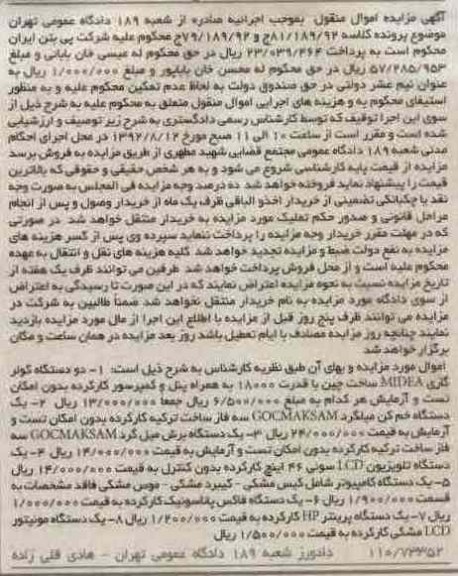 آگهی مزایده اموال منقول بموجب اجرائیه صادره از شعبه ۱۸۹ دادگاه عمومی تهران
موضوع پرونده کلاسه ۸۱/۱۸۹/۹۲ج و ۷۹/۱۸۹/۹۲ج محکوم علیه شرکت پی بتن ایران
محکوم است به پرداخت ۲۳/۰۳۹/۴۶۴ ریال در حق محکوم له عیسی خان بابائی و مبلغ
۵۷/۲۸۵/۹۵۳ ریال در حق محکوم له محسن خان باباپور و مبلغ ۱/۰۰۰/۰۰۰ ریال به
عنوان نیم عشر دولتی در حق صندوق دولت به لحاظ عدم تمکین محکوم علیه و به منظور
استیفای محکوم به و هزینه های اجرایی اموال منقول متعلق به محکوم علیه به شرح ذیل از
سوی این اجرا توقیف که توسط کارشناس رسمی دادگستری به شرح زیر توصیف و ارزشیابی
شده است و مقرر است از ساعت ۱۰ الی ۱۱ صبح مورخ ۱۳۹۲/۸/۱۲ در محل اجرای احکام
مدنی شعبه ۱۸۹ دادگاه عمومی مجتمع قضایی شهید مطهری از طریق مزایده به فروش برسد
مزایده از قیمت پایه کارشناسی شروع می شود و به هر شخص حقیقی و حقوقی که بالاترین
قیمت را پیشنهاد نماید فروخته خواهد شد ده درصد وجه مزایده فی المجلس به صورت وجه
نقد یا چکبانکی تضمینی از خریدار اخذو الباقی ظرف یک ماه از خریدار وصول و پس از انجام
مراحل قانونی و صدور حکم تملیک مورد مزایده به خریدار منتقل خواهد شد در صورتی که
در مهلت مقرر خریدار وجه مزایده را پرداخت ننماید سپرده وی پس از کسر هزینه های
مزایده به نفع دولت ضبط و مزایده تجدید خواهد شد کلیه هزینه های نقل و انتقال به عهده
محکوم علیه است و از محل فروش پرداخت خواهد شد طرفین می توانند ظرف یک هفته از
تاریخ مزایده نسبت به نحوه مزایده اعتراض نمایند که در این صورت تا رسیدگی به اعتراض
از سوی دادگاه مورد مزایده به نام خریدار منتقل نخواهد شد ضمناً طالبین به شرکت در
مزایده می توانند ظرف پنج روز قبل از مزایده با اطلاع این اجرا از مال مورد مزایده بازدید
نمایند چنانچه روز مزایده مصادف با ایام تعطیل باشد روز بعد مزایده در همان ساعت و مکان
برگزار خواهد شد
اموال مورد مزایده و بهای آن طبق نظریه کارشناس به شرح ذیل است: ۱- دو دستگاه کولر
گازی MIDEA ساخت چین با قدرت ۱۸۰۰۰ به همراه پنل و کمپرسور کارکرده بدون امکان
تست و آزمایش هر کدام به مبلغ ۶/۵۰۰/۰۰۰ ریال جمعا ۱۳/۰۰۰/۰۰۰ ریال ۲- یک
دستگاه خم کن میلگرد GOCMAKSAM سه فاز ساخت ترکیه کارکرده بدون امکان تست و
آزمایش به قیمت ۲۴/۰۰۰/۰۰۰ ریال ۳- یک دستگاه برش میل گرد GOCMAKSAM سه
فاز ساخت ترکیه کارکرده بدون امکان تست و آزمایش به قیمت ۱۴/۰۰۰/۰۰۰ ریال ۴- یک
دستگاه تلویزیون LCD سونی ۴۶ اینچ کارکرده بدون کنترل به قیمت ۱۴/۰۰۰/۰۰۰ ریال
۵- یک دستگاه کامپیوتر شامل کیس مشکی - کیبرد مشکی - موس مشکی فاقد مشخصات به
قسمت ۱/۹۰۰/۰۰۰ ریال ۶- یک دستگاه فاکس پاناسونیک کارکرده به قیمت ۱/۰۰۰/۰۰۰
ریال ۷- یک دستگاه پرینتر HP کارکرده به قیمت ۱/۲۰۰/۰۰۰ ریال ۸- یک دستگاه مونیتور
LCD مشکی کارکرده به قیمت ۱/۵۰۰/۰۰۰ ریال
۱۱۰/۷۳۳۵۲ دادورز شعبه ۱۸۹ دادگاه عمومی تهران - هادی قلی زاده